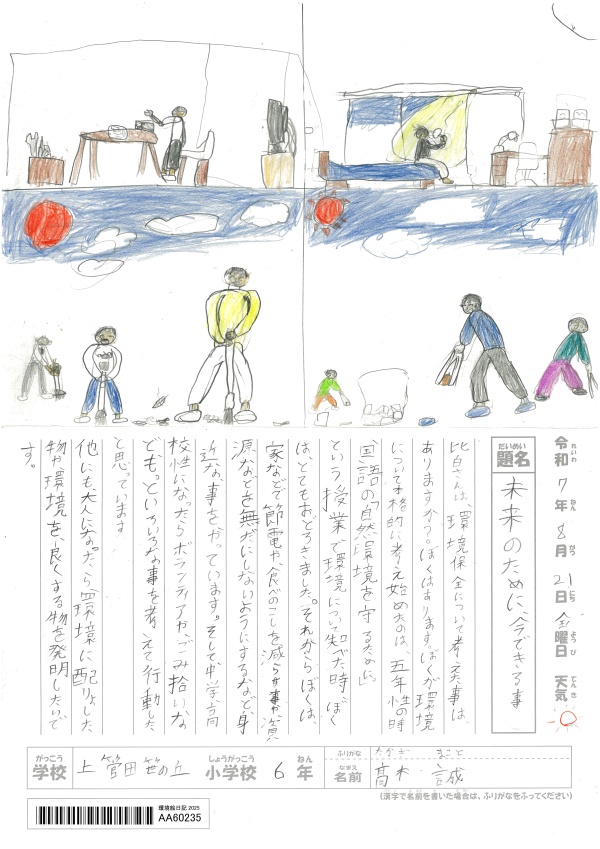 令和7年8月21日金曜日 天気
れいわ ねん がつ にち ようび てんき
だいめい
題名 未来のために、今できる事
皆さんは、「環境保全について考えた事は、
ありますか?。ぼくはあります。ぼくが環境
について本格的に考え始めたのは、五年性の時
国語の「自然環境を守るために」
という授業で環境について知った時ぼく
は、とてもおどろきました。それからぼくは、
家などで節電や、食べのこしを減らす事や資
源などを無だにしないようにするなど、身
近な事をがっています。そして中学、高
校性になったらボランティアや、ごみ拾い、な
ども。といろいろな事を考えて行動した
と思っています
他にも大人になったら環境に配りょした
物や、環境を、良くする物を発明したいで
す。
がっこう しょうがっこう ねん
学校 上菅田笹の丘 小学校 6年
ふりがな たかぎ まこと
なまえ
名前 髙木 誠
(漢字で名前を書いた場合は、ふりがなをふってください)
環境絵日記 2025
AA60235